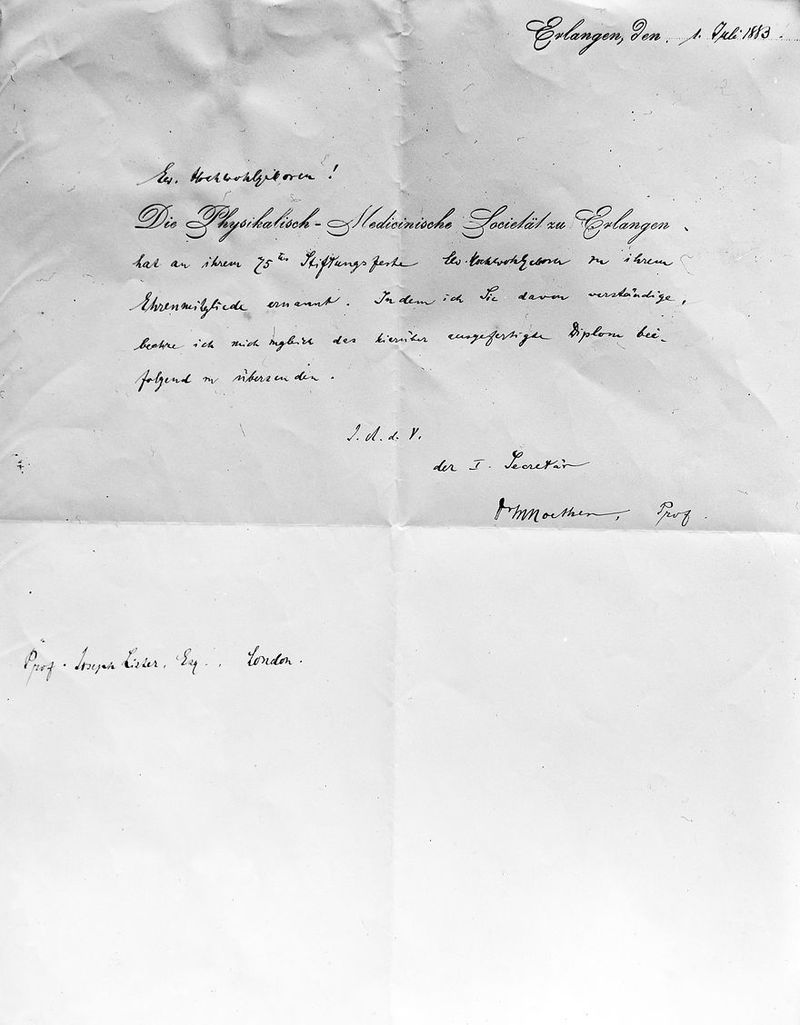 Erlangen, den 1. Juli 1883.
Ew. Hochwohlgeboren!
Die Physikalisch-Medicinische Societät zu Erlangen
hat an ihrem 75ten Stiftungsfeste Ew. Hochwohlgeboren zu ihrem
Ehrenmitgliede ernannt. Indem ich Sie davon verständige,
beehre ich mich zugleich das hierüber ausgefertigte Diplom bei-
folgend zu übersenden.
I. A. d. V.
der I. Secretär
Prof.
Prof. Joseph Lister, Esq., London.